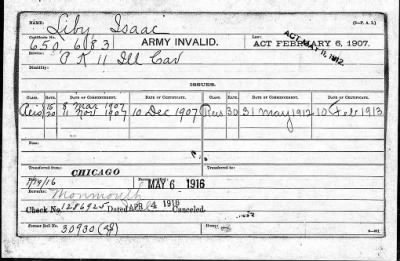 NAME: Liby Isaac (3-F. A. D.)
Certificate No. 650,683 ARMY INVALID. ACT FEBRUARY 6, 1907. ACT MAY 11, 1912.
Service: P K 11 Ill Cav
Disability:
ISSUES.
CLASS. RATE. DATE OF COMMENCEMENT. DATE OF CERTIFICATE. CLASS. RATE. DATE OF COMMENCEMENT. DATE OF CERTIFICATE.
Reis 15 8 Mar 1907
20 11 Nov 1907 10 Dec 1907 Reis 30 31 May 1912 10 Feb 1913
Fees:
Transferred from CHICAGO Transferred to
7/19/16 MAY 6 1916
Remarks: Monmouth
Check No. 1286925 Dated APR 4 1916 Canceled.
Former Roll No. 30930 Home: